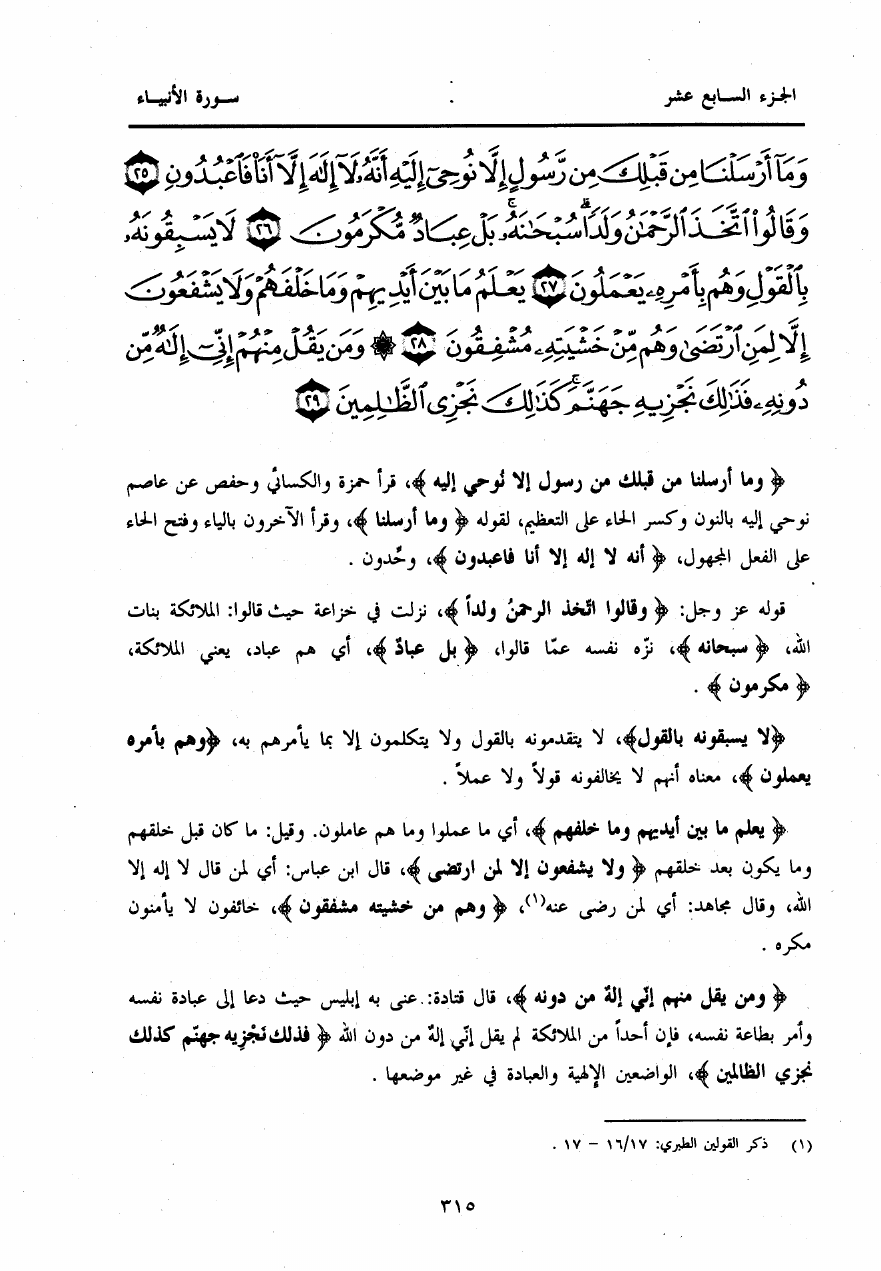 الجزء السابع عشر
سورة الأنبياء
وَمَآ أَرْسَلْنَا مِن قَبْلِكَ مِن رَّسُولٍ إِلَّا نُوحِىٓ إِلَيْهِ أَنَّهُۥ لَآ إِلَٰهَ إِلَّآ أَنَا۠ فَٱعْبُدُونِ ٢٥
وَقَالُوا۟ ٱتَّخَذَ ٱلرَّحْمَٰنُ وَلَدًا ۗ سُبْحَٰنَهُۥ ۚ بَلْ عِبَادٌ مُّكْرَمُونَ ٢٦ لَا يَسْبِقُونَهُۥ
بِٱلْقَوْلِ وَهُم بِأَمْرِهِۦ يَعْمَلُونَ ٢٧ يَعْلَمُ مَا بَيْنَ أَيْدِيهِمْ وَمَا خَلْفَهُمْ وَلَا يَشْفَعُونَ
إِلَّا لِمَنِ ٱرْتَضَىٰ وَهُم مِّنْ خَشْيَتِهِۦ مُشْفِقُونَ ٢٨ ۞ وَمَن يَقُلْ مِنْهُمْ إِنِّىٓ إِلَٰهٌ مِّن
دُونِهِۦ فَذَٰلِكَ نَجْزِيهِ جَهَنَّمَ ۚ كَذَٰلِكَ نَجْزِى ٱلظَّٰلِمِينَ ٢٩
﴿ وما أرسلنا من قبلك من رسول إلا نُوحي إليه ﴾، قرأ حمزة والكسائي وحفص عن عاصم
نوحي إليه بالنون وكسر الحاء على التعظيم، لقوله ﴿ وما أرسلنا ﴾، وقرأ الآخرون بالياء وفتح الحاء
على الفعل المجهول، ﴿ أنه لا إله إلا أنا فاعبدون ﴾، وحِّدون .
قوله عز وجل: ﴿ وقالوا اتّخذ الرحمنُ ولداً ﴾، نزلت في خزاعة حيث قالوا: الملائكة بنات
الله، ﴿ سبحانه ﴾، نزّه نفسه عمّا قالوا، ﴿ بل عبادٌ ﴾، أي هم عباد، يعني الملائكة،
﴿ مكرمون ﴾ .
﴿لا يسبقونه بالقول﴾، لا يتقدمونه بالقول ولا يتكلمون إلا بما يأمرهم به، ﴿وهم بأمره
يعملون ﴾، معناه أنهم لا يخالفونه قولاً ولا عملاً .
﴿ يعلم ما بين أيديهم وما خلفهم ﴾، أي ما عملوا وما هم عاملون. وقيل: ما كان قبل خلقهم
وما يكون بعد خلقهم ﴿ ولا يشفعون إلا لمن ارتضى ﴾، قال ابن عباس: أي لمن قال لا إله إلا
الله، وقال مجاهد: أي لمن رضى عنه(١)، ﴿ وهم من خشيته مشفقون ﴾، خائفون لا يأمنون
مكره .
﴿ ومن يقل منهم إنّي إلهٌ من دونه ﴾، قال قتادة: عنى به إبليس حيث دعا إلى عبادة نفسه
وأمر بطاعة نفسه، فإن أحداً من الملائكة لم يقل إنّي إلهٌ من دون الله ﴿ فذلك نَجْزِيه جهنّم كذلك
نجزي الظالمين ﴾، الواضعين الإلهية والعبادة في غير موضعها .
(١) ذكر القولين الطبري: ١٦/١٧ – ١٧ .
٣١٥